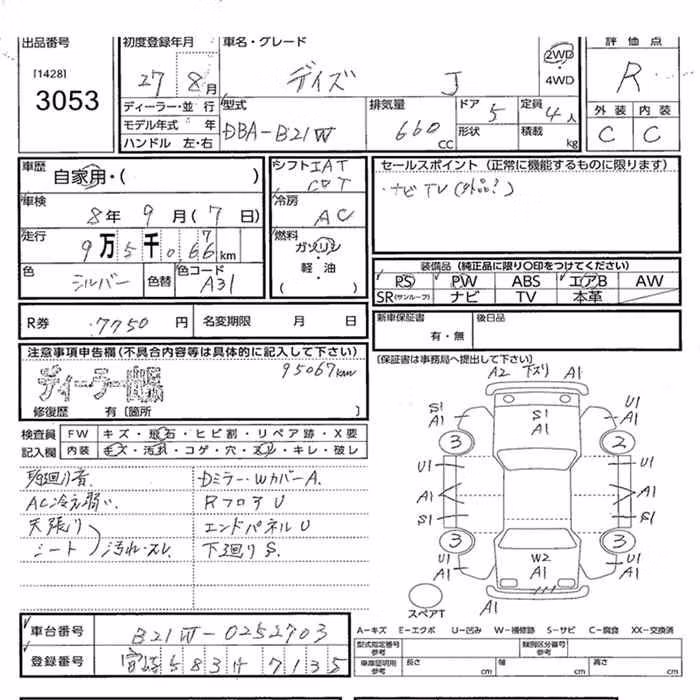 出品番号
[1428]
3053
初度登録年月
27 8月
車名・グレード
デイズ J
2WD
・
4WD
評価点
R
外装 内装
C C
ディーラー・並行
モデル年式 年
ハンドル 左・右
型式
DBA-B21W
排気量
660
CC
ドア 5
形状
定員 4人
積載 kg
車歴
自家用・( )
車検
8年 9月(7日)
走行
9万5千067km
色
シルバー
色替
色コード
A31
シフト IAT
冷房
AC
燃料
ガソリン
・
軽・油
( )
セールスポイント (正常に機能するものに限ります)
・ナビTV(社品?)
装備品 (純正品に限り○印をつけてください)
PS PW ABS エアB AW
SR(サンルーフ) ナビ TV 本革
R券 7750円 名変期限 月 日
新車保証書
有・無
後日品
注意事項申告欄(不具合内容等は具体的に記入して下さい)
95067km
修復歴 有〔箇所 〕
〔保証書は事務局へ提出して下さい〕
検査員
記入欄
FW キズ・飛石・ヒビ割・リペア跡・X要
内装 キズ・汚れ・コゲ・穴・スレ・キレ・破レ
AC冷え弱い
天張り
シート 汚れ・スレ
Dミラー・WカバーA.
RフロアU
エンドパネルU
下廻りS.
A2 下スリ A1
S1
A1
S1
A1
U1
A1
3
2
U1
U1
A1
A1
S1
S1
3
3
U1
A1
W2
A1
U1
A1
A1
スペアT
A－キズ E－エクボ U－凹み W－補修跡 S－サビ C－腐食 XX－交換済
車台番号
B21W-0252703
登録番号
宮崎583 7135
型式指定番号
参考
類別区分番号
参考
車庫証明用
参考
長さ cm
幅 cm
高さ cm